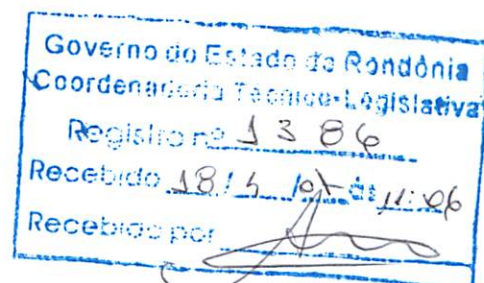 Governo do Estado de Rondônia
Coordenadoria Técnico-Legislativa
Registro nº 1386
Recebido 18/5 às 11:06
Recebido por